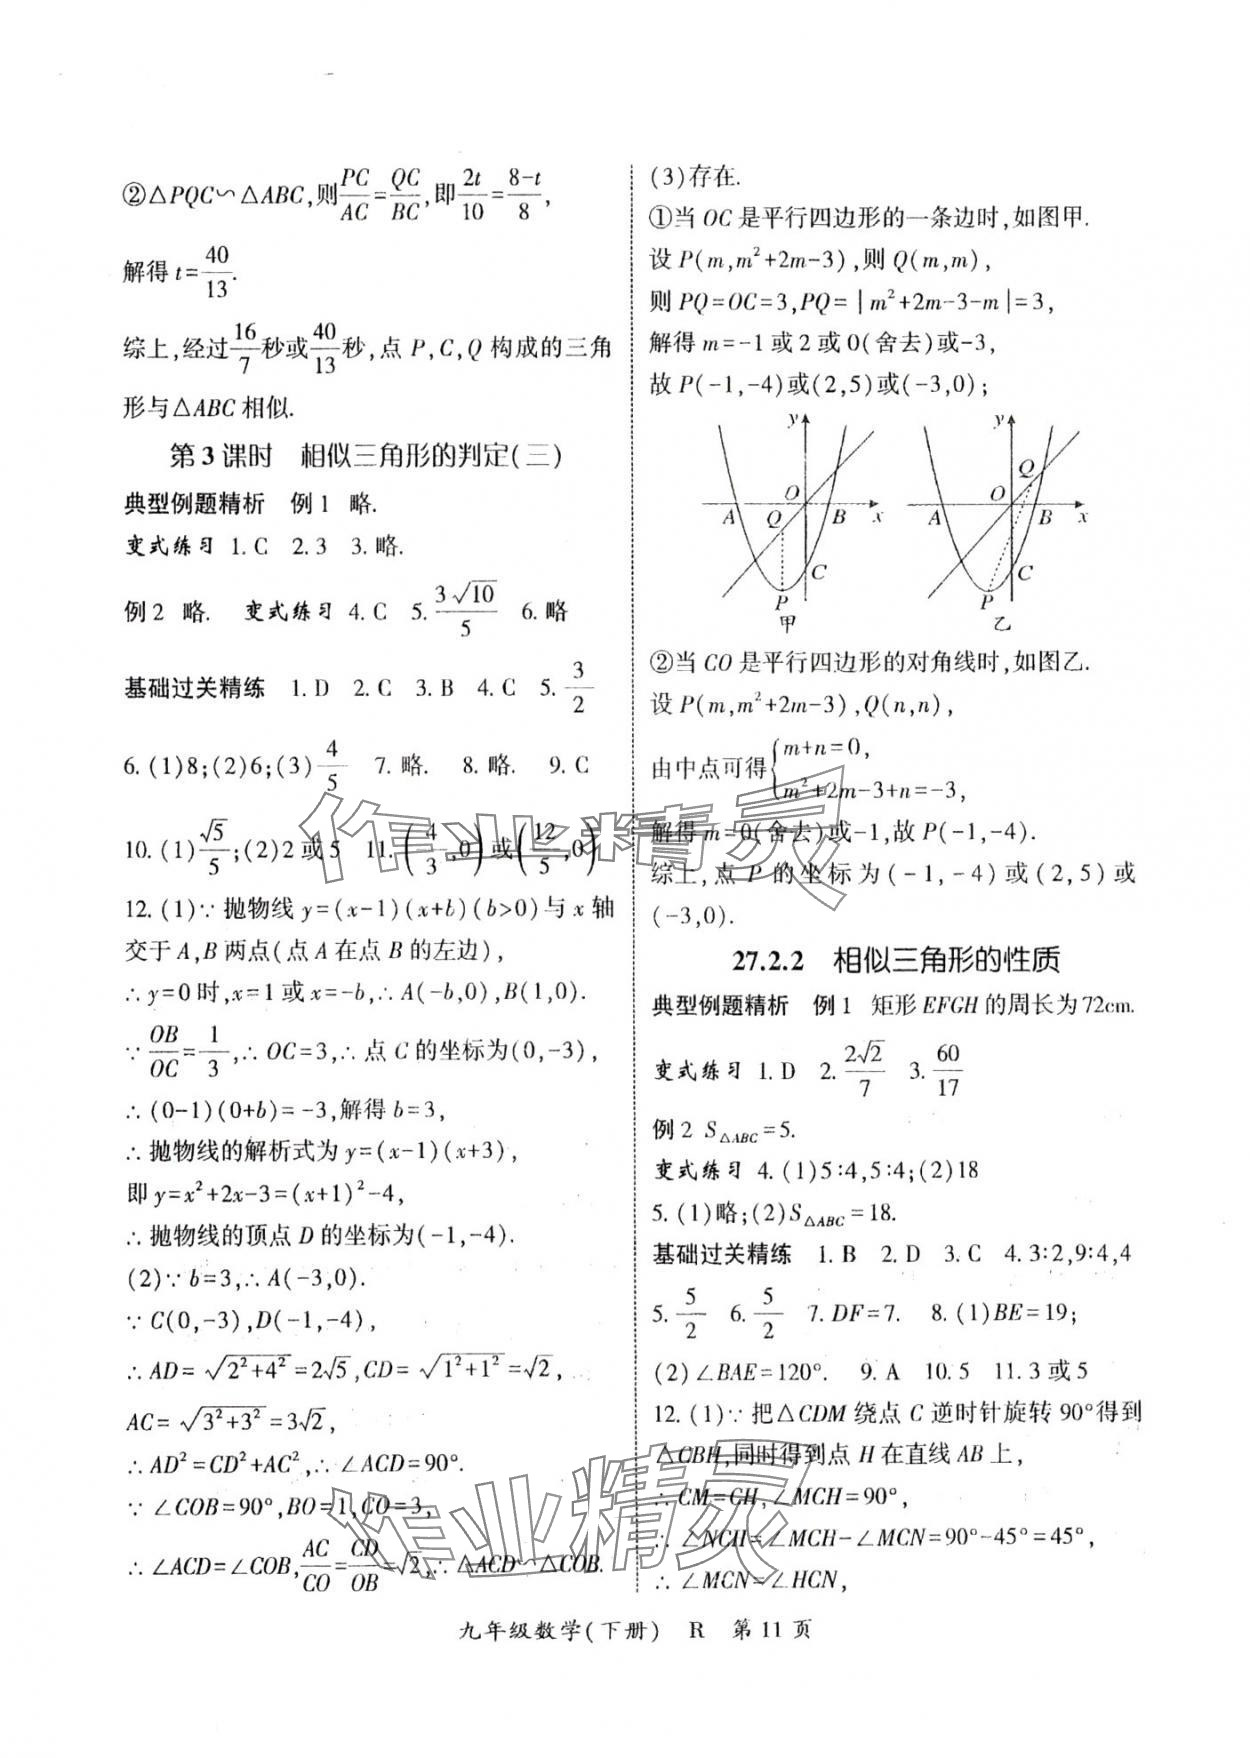 ②△PQC∽△ABC,则PC/AC=QC/BC,即2t/10=(8-t)/8,
解得 t=40/13.
综上,经过16/7秒或40/13秒,点 P,C,Q 构成的三角
形与△ABC 相似.
第 3 课时 相似三角形的判定(三)
典型例题精析 例 1 略.
变式练习 1. C 2. 3 3. 略.
例 2 略. 变式练习 4. C 5. 3√10/5 6. 略
基础过关精练 1. D 2. C 3. B 4. C 5. 3/2
6. (1)8;(2)6;(3)4/5 7. 略. 8. 略. 9. C
10. (1)√5/5;(2)2 或 5 11. (4/3,0)或(12/5,0)
12. (1)∵ 抛物线 y=(x-1)(x+b)(b>0)与 x 轴
交于 A,B 两点(点 A 在点 B 的左边),
∴ y=0 时,x=1 或 x=-b,∴ A(-b,0),B(1,0).
∵ OB/OC=1/3,∴ OC=3,∴ 点 C 的坐标为(0,-3),
∴ (0-1)(0+b)=-3,解得 b=3,
∴ 抛物线的解析式为 y=(x-1)(x+3),
即 y=x²+2x-3=(x+1)²-4,
∴ 抛物线的顶点 D 的坐标为(-1,-4).
(2)∵ b=3,∴ A(-3,0).
∵ C(0,-3),D(-1,-4),
∴ AD=√(2²+4²)=2√5,CD=√(1²+1²)=√2,
AC=√(3²+3²)=3√2,
∴ AD²=CD²+AC²,∴ ∠ACD=90°.
∵ ∠COB=90°,BO=1,CO=3,
∴ ∠ACD=∠COB,AC/CO=CD/OB=√2,∴ △ACD∽△COB.
(3)存在.
①当 OC 是平行四边形的一条边时,如图甲.
设 P(m,m²+2m-3),则 Q(m,m),
则 PQ=OC=3,PQ=|m²+2m-3-m|=3,
解得 m=-1 或 2 或 0(舍去)或-3,
故 P(-1,-4)或(2,5)或(-3,0);
y
O
A
Q
B
x
C
P
甲
y
Q
O
A
B
x
C
P
乙
②当 CO 是平行四边形的对角线时,如图乙.
设 P(m,m²+2m-3),Q(n,n),
由中点可得{m+n=0,
m²+2m-3+n=-3,
解得 m=0(舍去)或-1,故 P(-1,-4).
综上,点 P 的坐标为(-1,-4)或(2,5)或
(-3,0).
27.2.2 相似三角形的性质
典型例题精析 例 1 矩形 EFGH 的周长为 72cm.
变式练习 1. D 2. 2√2/7 3. 60/17
例 2 S△ABC=5.
变式练习 4. (1)5∶4,5∶4;(2)18
5. (1)略;(2)S△ABC=18.
基础过关精练 1. B 2. D 3. C 4. 3∶2,9∶4,4
5. 5/2 6. 5/2 7. DF=7. 8. (1)BE=19;
(2)∠BAE=120°. 9. A 10. 5 11. 3 或 5
12. (1)∵ 把△CDM 绕点 C 逆时针旋转 90°得到
△CBH,同时得到点 H 在直线 AB 上,
∴ CM=CH,∠MCH=90°,
∴ ∠NCH=∠MCH-∠MCN=90°-45°=45°,
∴ ∠MCN=∠HCN,
九年级数学(下册) R 第 11 页
作业精灵
作业精灵